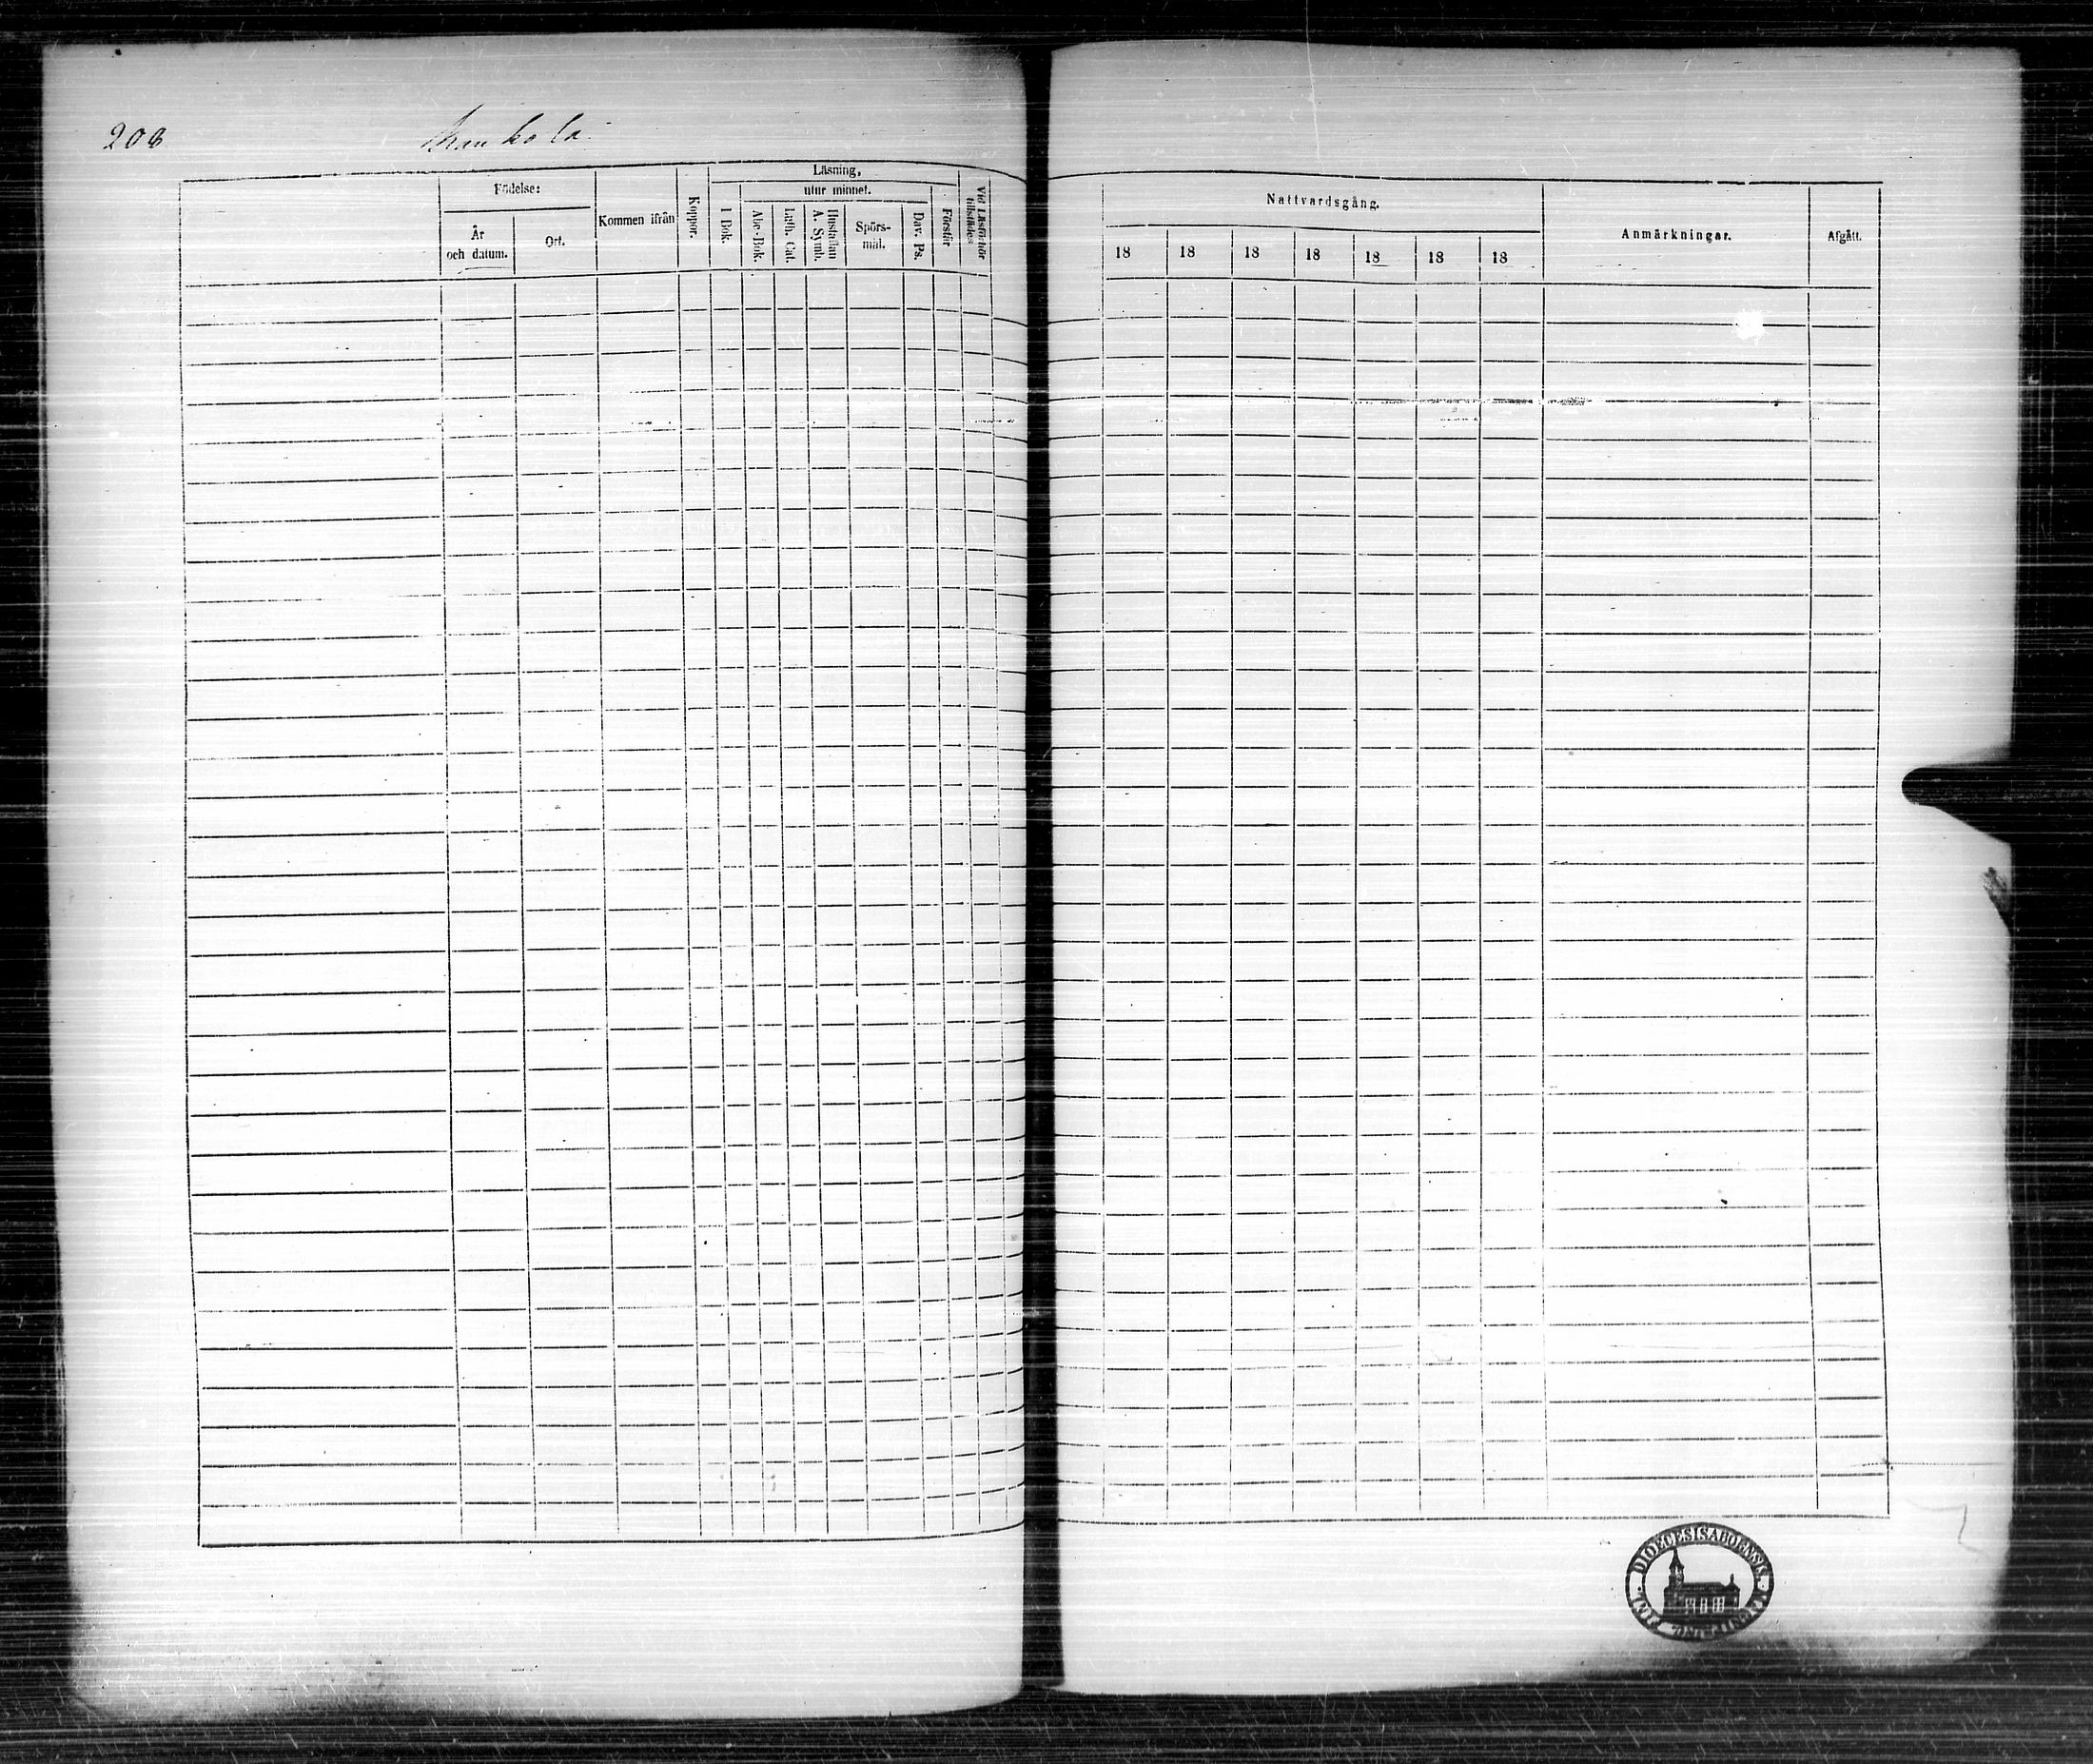 208
Födelse:
År
och datum.
Ort.
Kommen ifrån
Koppor.
Läsning,
utur minnet.
I Bok.
Abc-Bok.
Luth. Cat.
Hustaflan
A. Symb.
Spörs-
mål.
Dav. Ps.
Förstår
Vid Läsförhör
tillstädes
Nattvardsgång.
18 18 18 18 18 18 18
Anmärkningar.
Afgått.
DIOECESIS ABOENSIS